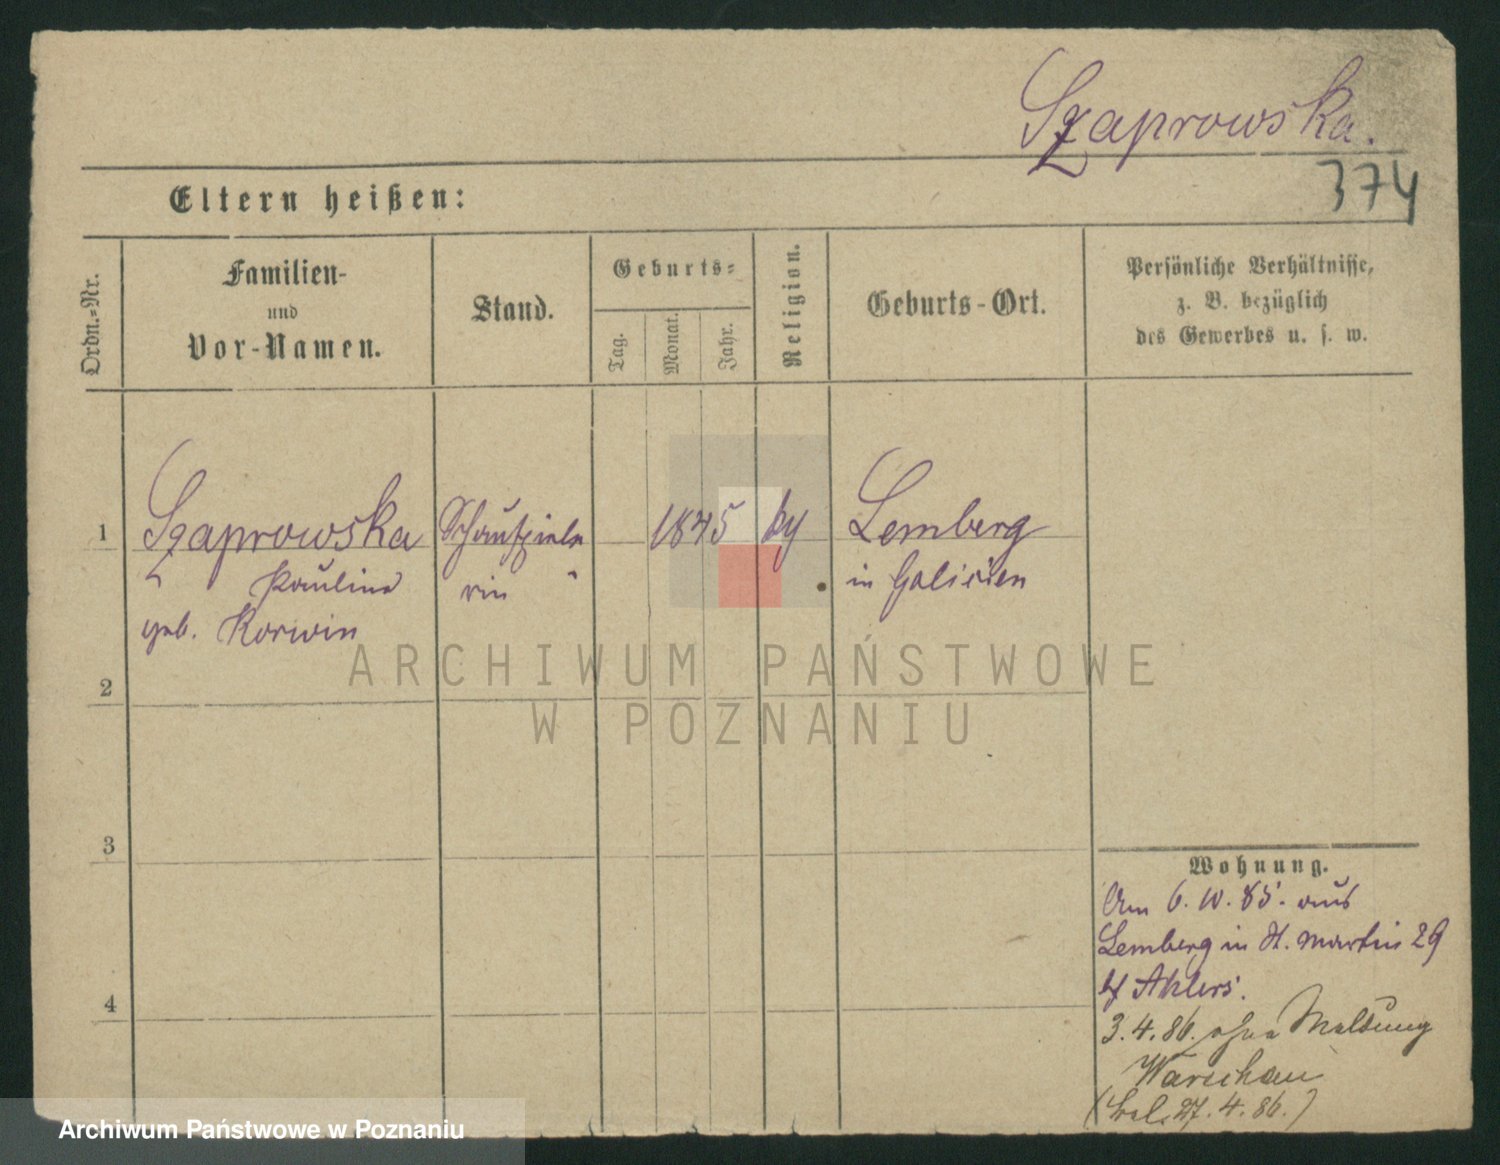 Szaprowska.
374
Eltern heißen:
Ordn.-Nr.
Familien-
und
Vor-Namen.
Stand.
Geburts-
Tag.
Monat.
Jahr.
Religion.
Geburts-Ort.
Persönliche Verhältnisse,
z. B. bezüglich
des Gewerbes u. s. w.
1
Szaprowska
Pauline
geb. Korwin
Schauspiele
rin
1845
Lemberg
in Galizien
2
3
4
Wohnung.
Am 6. 10. 85. aus
Lemberg in St. Martin 29
bei Ahlers.
3. 4. 86. ohne Meldung
Warschau
27. 4. 86.)
ARCHIWUM PAŃSTWOWE
W POZNANIU
Archiwum Państwowe w Poznaniu